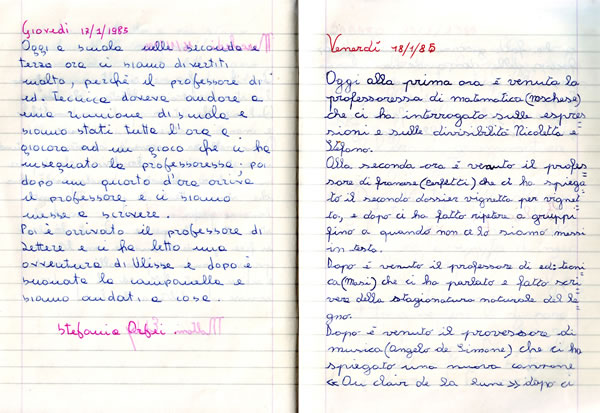 Giovedì 17/1/1985
Oggi a scuola nelle seconda e
terza ora ci siamo divertiti
molto, perchè il professore di
ed. Tecnica doveva andare a
una riunione di scuola e
siamo stati tutta l'ora a
giocare ad un gioco che ci ha
insegnato la professoressa; poi
dopo un quarto d'ora arriva
il professore e ci siamo
messi a scrivere.
Poi è arrivato il professore di
Lettere e ci ha letto una
avventura di Ulisse e dopo è
suonata la campanella e
siamo andati a casa.
Stefania Orfei.
Venerdí 18/1/85
Oggi alla prima ora è venuta la
professoressa di matematica (Moschese)
che ci ha interrogato sulle espres=
sioni e sulle divisibilità Nicoletta e
Stefano.
Alla seconda ora è venuto il profes=
sore di francese (Confetti) che ci ha spiega=
to il secondo dossier vignetta per vignet=
ta, e dopo ci ha fatto ripetere a gruppi
fino a quando non ce lo siamo messi
in testa.
Dopo è venuto il professore di ed: tecni=
ca (Masi) che ci ha parlato e fatto scri=
vere della stagionatura naturale del le=
gno.
Dopo è venuto il provessore di
musica (Angelo de Simone) che ci ha
spiegato una nuova canzone
«Au clair de la lune» dopo ci